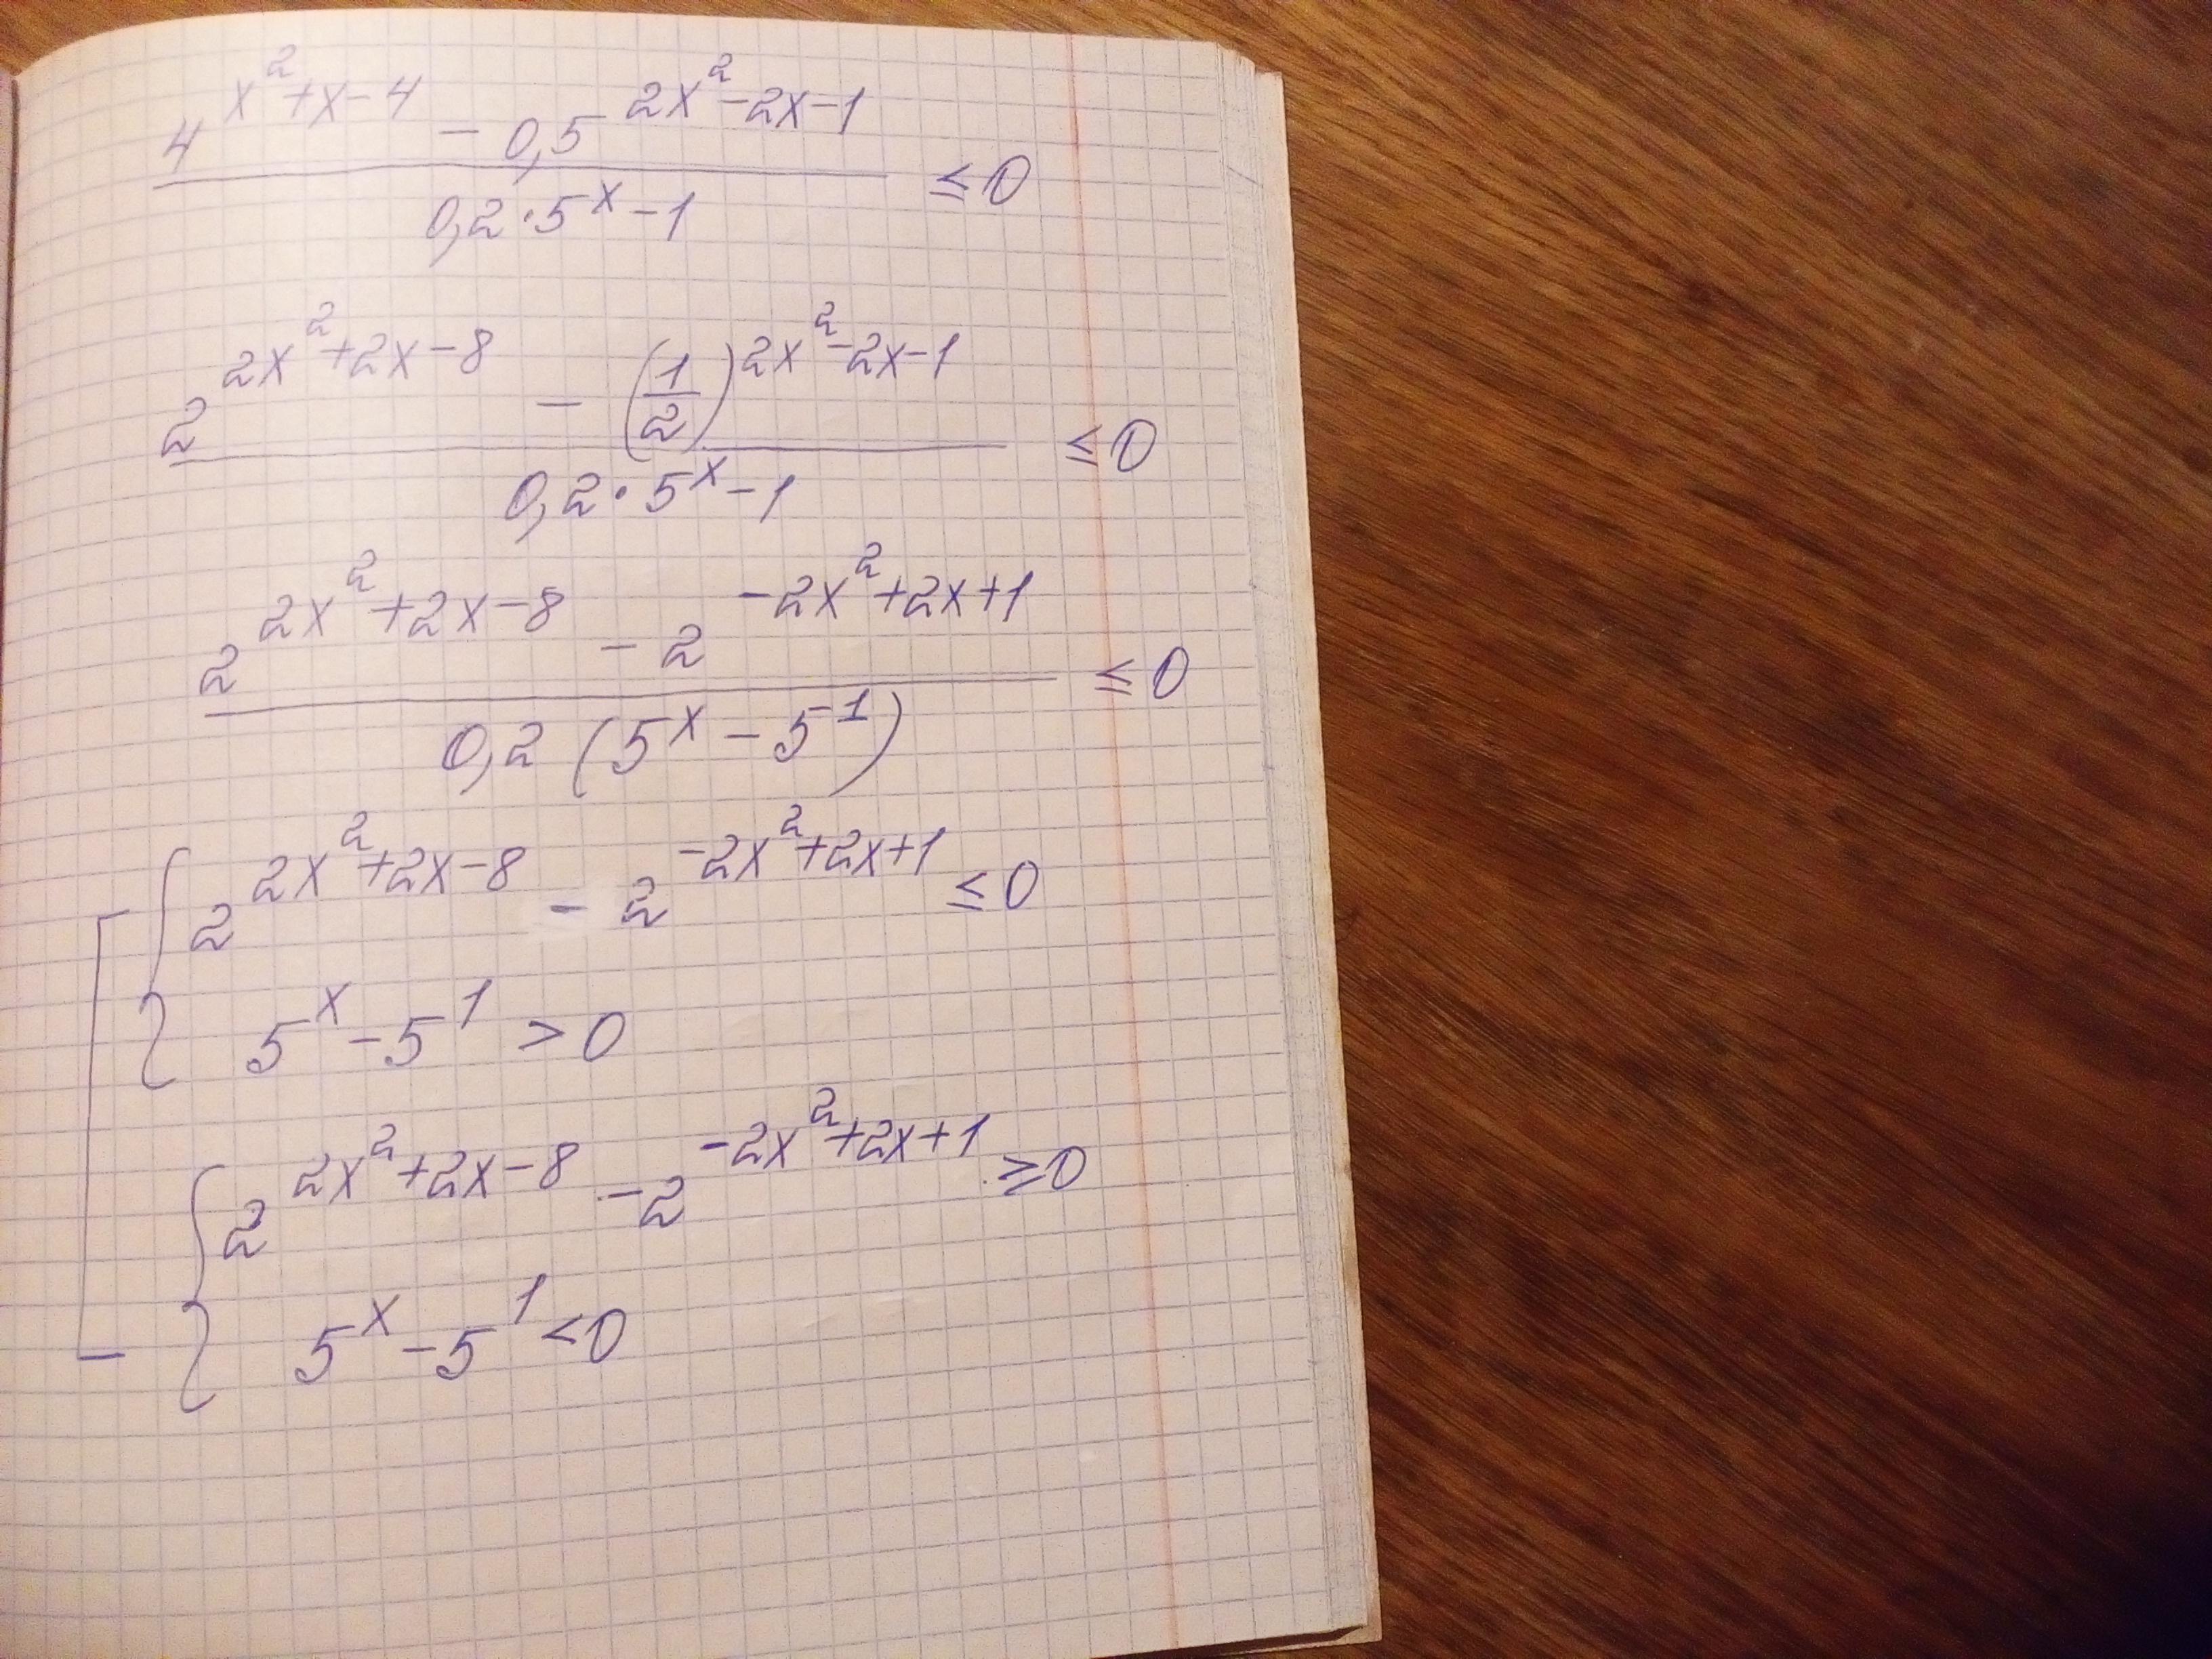 4^(x²+x-4) - 0,5^(2x²-2x-1)
/ (0,2·5^x - 1) ≤ 0
2^(2x²+2x-8) - (1/2)^(2x²-2x-1)
/ (0,2·5^x - 1) ≤ 0
2^(2x²+2x-8) - 2^(-2x²+2x+1)
/ (0,2(5^x - 5^1)) ≤ 0
[ { 2^(2x²+2x-8) - 2^(-2x²+2x+1) ≤ 0
5^x - 5^1 > 0
{ 2^(2x²+2x-8) - 2^(-2x²+2x+1) ≥ 0
5^x - 5^1 < 0